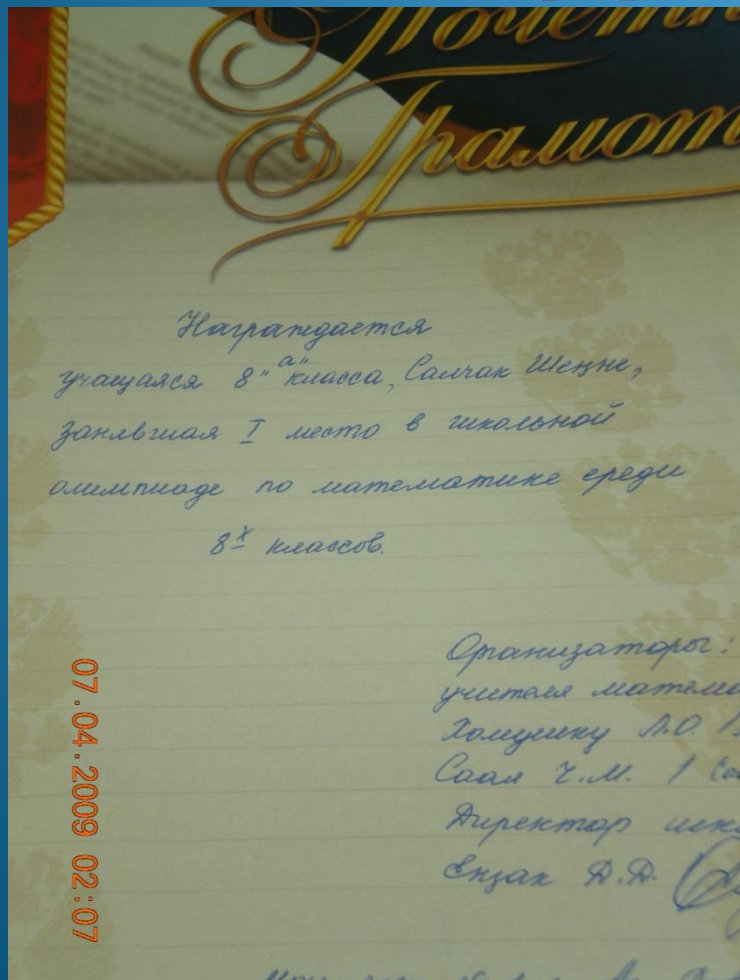 Почетн
Грамот
Награждается
учащаяся 8 "а" класса, Салчак Шеңне,
занявшая I место в школьной
олимпиаде по математике среди
8х классов.
Организаторы:
учителя матем
Хомушку Л.О.
Саая Ч.М.
Директор шко
Ензак Д.Д.
07.04.2009 02:07